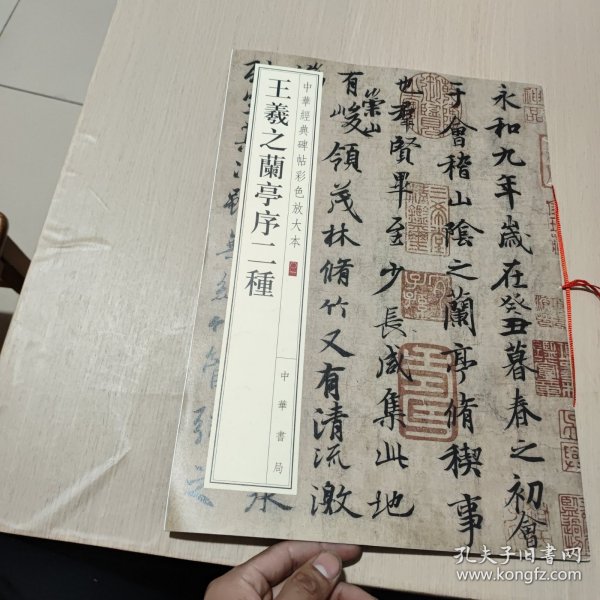 永和九年歲在癸丑暮春之初會
于會稽山陰之蘭亭脩稧事
也羣賢畢至少長咸集此地
有崇山峻領茂林脩竹又有清流激
中華經典碑帖彩色放大本
王羲之蘭亭序二種
中華書局
孔夫子旧书网
www.kongfz.com